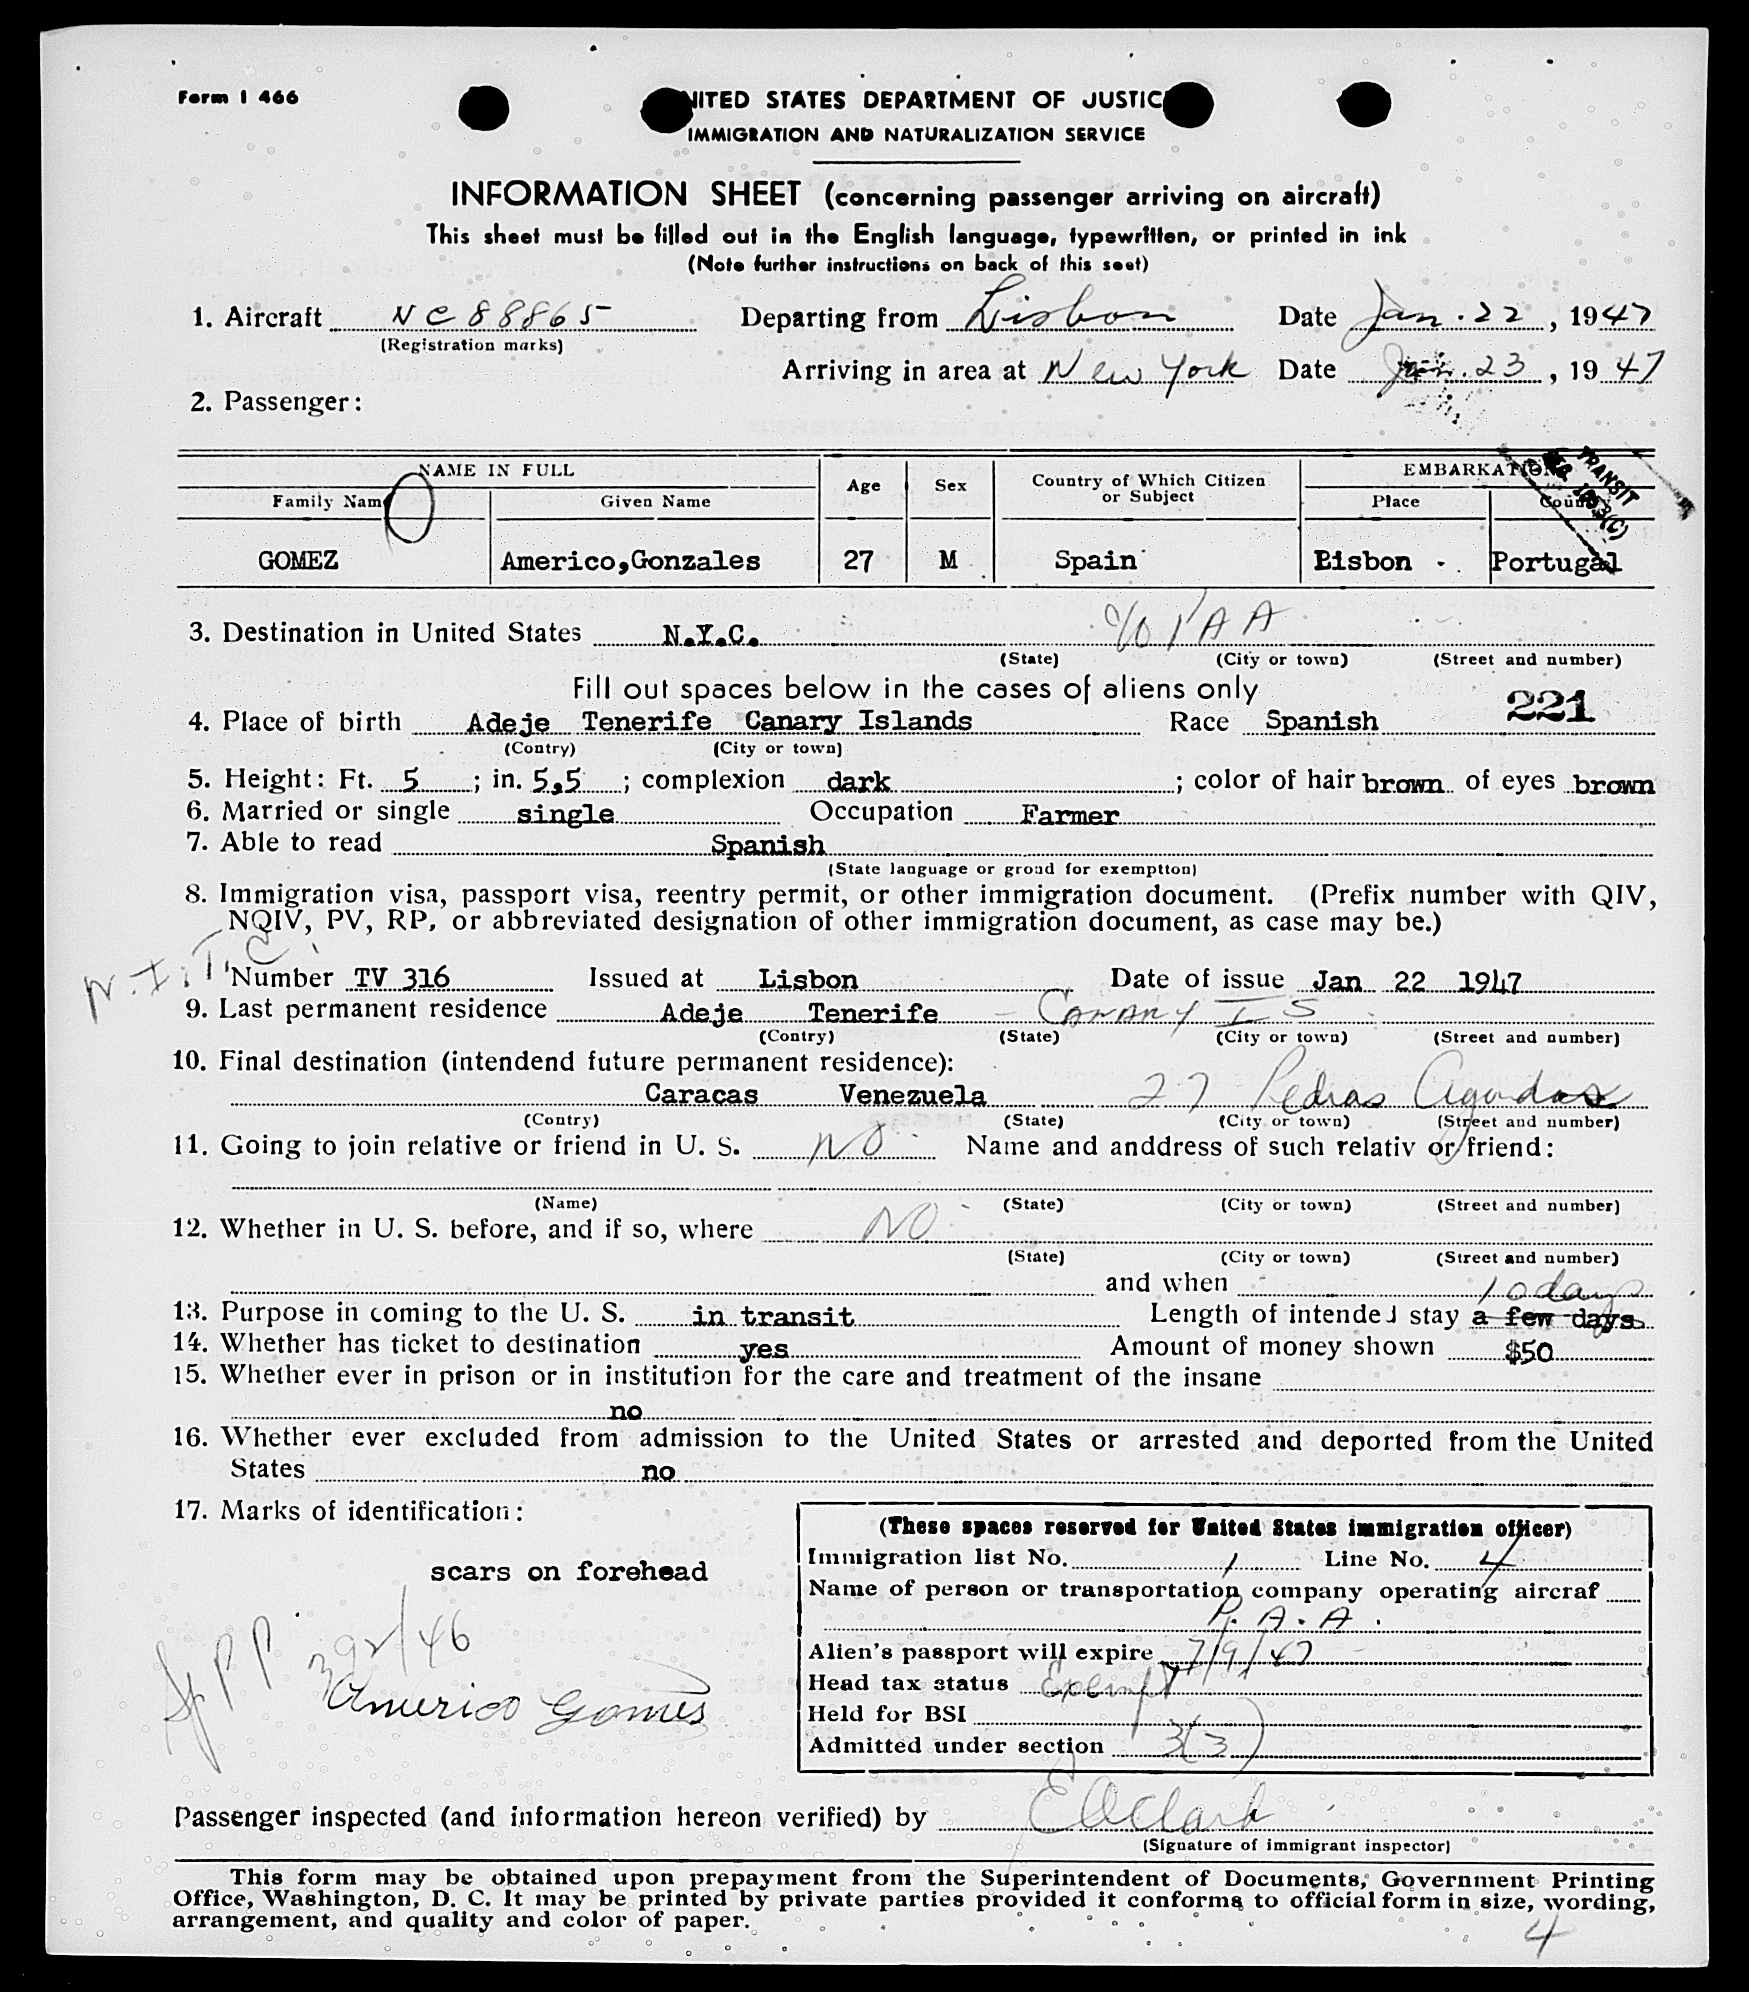 Form I 466
NITED STATES DEPARTMENT OF JUSTIC
IMMIGRATION AND NATURALIZATION SERVICE
INFORMATION SHEET (concerning passenger arriving on aircraft)
This sheet must be filled out in the English language, typewritten, or printed in ink
(Note further instructions on back of this seet)
1. Aircraft NC 88865 Departing from Lisbon Date Jan. 22, 1947
(Registration marks)
Arriving in area at New York Date Jan. 23, 1947
2. Passenger:
NAME IN FULL Age Sex Country of Which Citizen or Subject EMBARKATION
Family Name Given Name Place Country
TRANSIT
GOMEZ Americo,Gonzales 27 M Spain Bisbon Portugal
3. Destination in United States N.Y.C. c/o PAA
(State) (City or town) (Street and number)
Fill out spaces below in the cases of aliens only
221
4. Place of birth Adeje Tenerife Canary Islands Race Spanish
(Contry) (City or town)
5. Height: Ft. 5 ; in. 5,5 ; complexion dark ; color of hair brown of eyes brown
6. Married or single single Occupation Farmer
7. Able to read Spanish
(State language or groud for exemption)
8. Immigration visa, passport visa, reentry permit, or other immigration document. (Prefix number with QIV,
NQIV, PV, RP, or abbreviated designation of other immigration document, as case may be.)
N.I.T.C.
Number TV 316 Issued at Lisbon Date of issue Jan 22 1947
9. Last permanent residence Adeje Tenerife - CANARY IS
(Contry) (State) (City or town) (Street and number)
10. Final destination (intendend future permanent residence):
Caracas Venezuela 27 Pedras Agudas
(Contry) (State) (City or town) (Street and number)
11. Going to join relative or friend in U. S. NO Name and anddress of such relativ or friend:
(Name) (State) (City or town) (Street and number)
12. Whether in U. S. before, and if so, where NO
(State) (City or town) (Street and number)
and when
10 days
13. Purpose in coming to the U. S. in transit Length of intended stay a few days
14. Whether has ticket to destination yes Amount of money shown $50
15. Whether ever in prison or in institution for the care and treatment of the insane
no
16. Whether ever excluded from admission to the United States or arrested and deported from the United
States no
17. Marks of identification:
scars on forehead
(These spaces reserved for United States immigration officer)
Immigration list No. 1 Line No. 4
Name of person or transportation company operating aircraf
P.A.A.
Alien's passport will expire 7/9/47
Head tax status Exempt
Held for BSI
Admitted under section 3(3)
Sp PP 392/46
Americo Gomes
Passenger inspected (and information hereon verified) by E A Clark
(Signature of immigrant inspector)
This form may be obtained upon prepayment from the Superintendent of Documents, Government Printing
Office, Washington, D. C. It may be printed by private parties provided it conforms to official form in size, wording,
arrangement, and quality and color of paper.
4